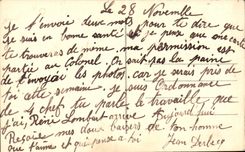 Le 28 Novembre
Je t'envoie deux mots pour te dire que
je suis en bonne santé et je pense que ma carte
te trouveras de même, ma permission est
partie au Colonel. Or sais pas la peine
de t'envoyer les photos car je serais près de
toi cette semaine. Je suis Ordonnance
de Chef tu parle le travaille que
j'ai, Réné Lombart arrive Aujourd'hui
Reçois mes doux baisers de ton homme
qui t'aime et qui pense a toi
Jean